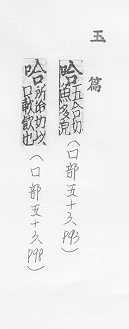 玉篇
哈五合切魚多皃(口部五十六
哈所洽切以口歃飲也(口部五十六